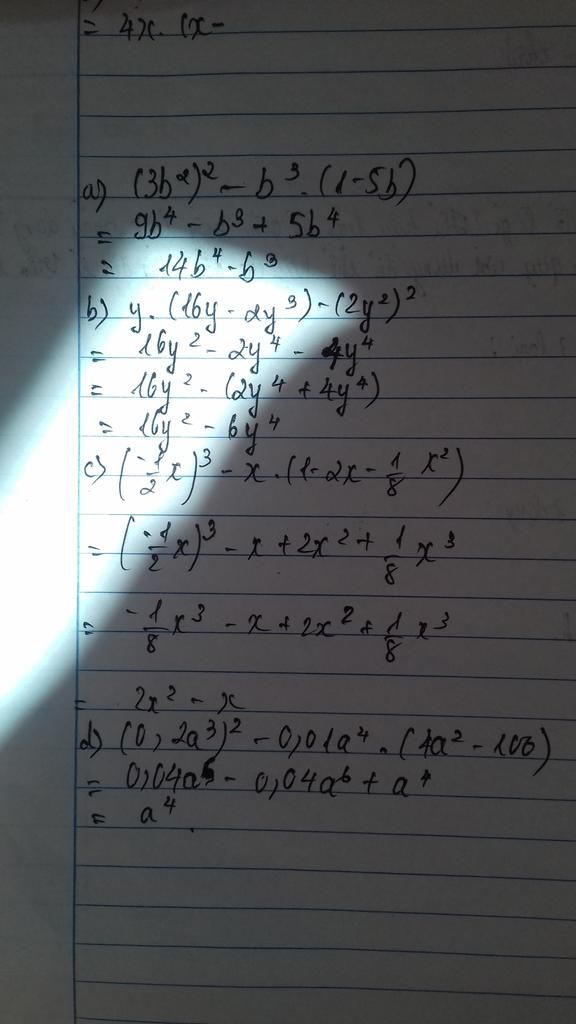 = 4x. (x -
a) (3b²)² - b³. (1-5b)
= 9b⁴ - b³ + 5b⁴
= 14b⁴ - b³
b) y. (16y - 2y³) - (2y²)²
= 16y² - 2y⁴ - 4y⁴
= 16y² - (2y⁴ + 4y⁴)
= 16y² - 6y⁴
c) (-1/2 x)³ - x. (1-2x - 1/8 x²)
= (-1/2 x)³ - x + 2x² + 1/8 x³
= -1/8 x³ - x + 2x² + 1/8 x³
= 2x² - x
d) (0,2a³)² - 0,01a⁴. (4a² - 100)
= 0,04a⁶ - 0,04a⁶ + a⁴
= a⁴